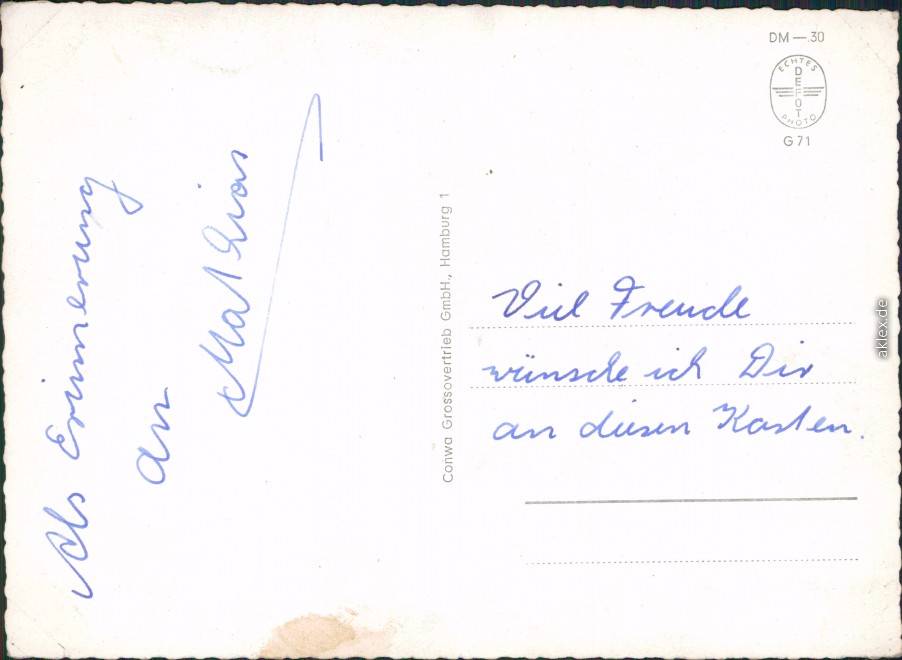 Als Erinnerung
an
Mathias
Conwa Grossovertrieb GmbH., Hamburg 1
DM —.30
ECHTES
DEFOT
PHOTO
G 71
Viel Freude
wünsche ich Dir
an diesen Karten.
aklex.de